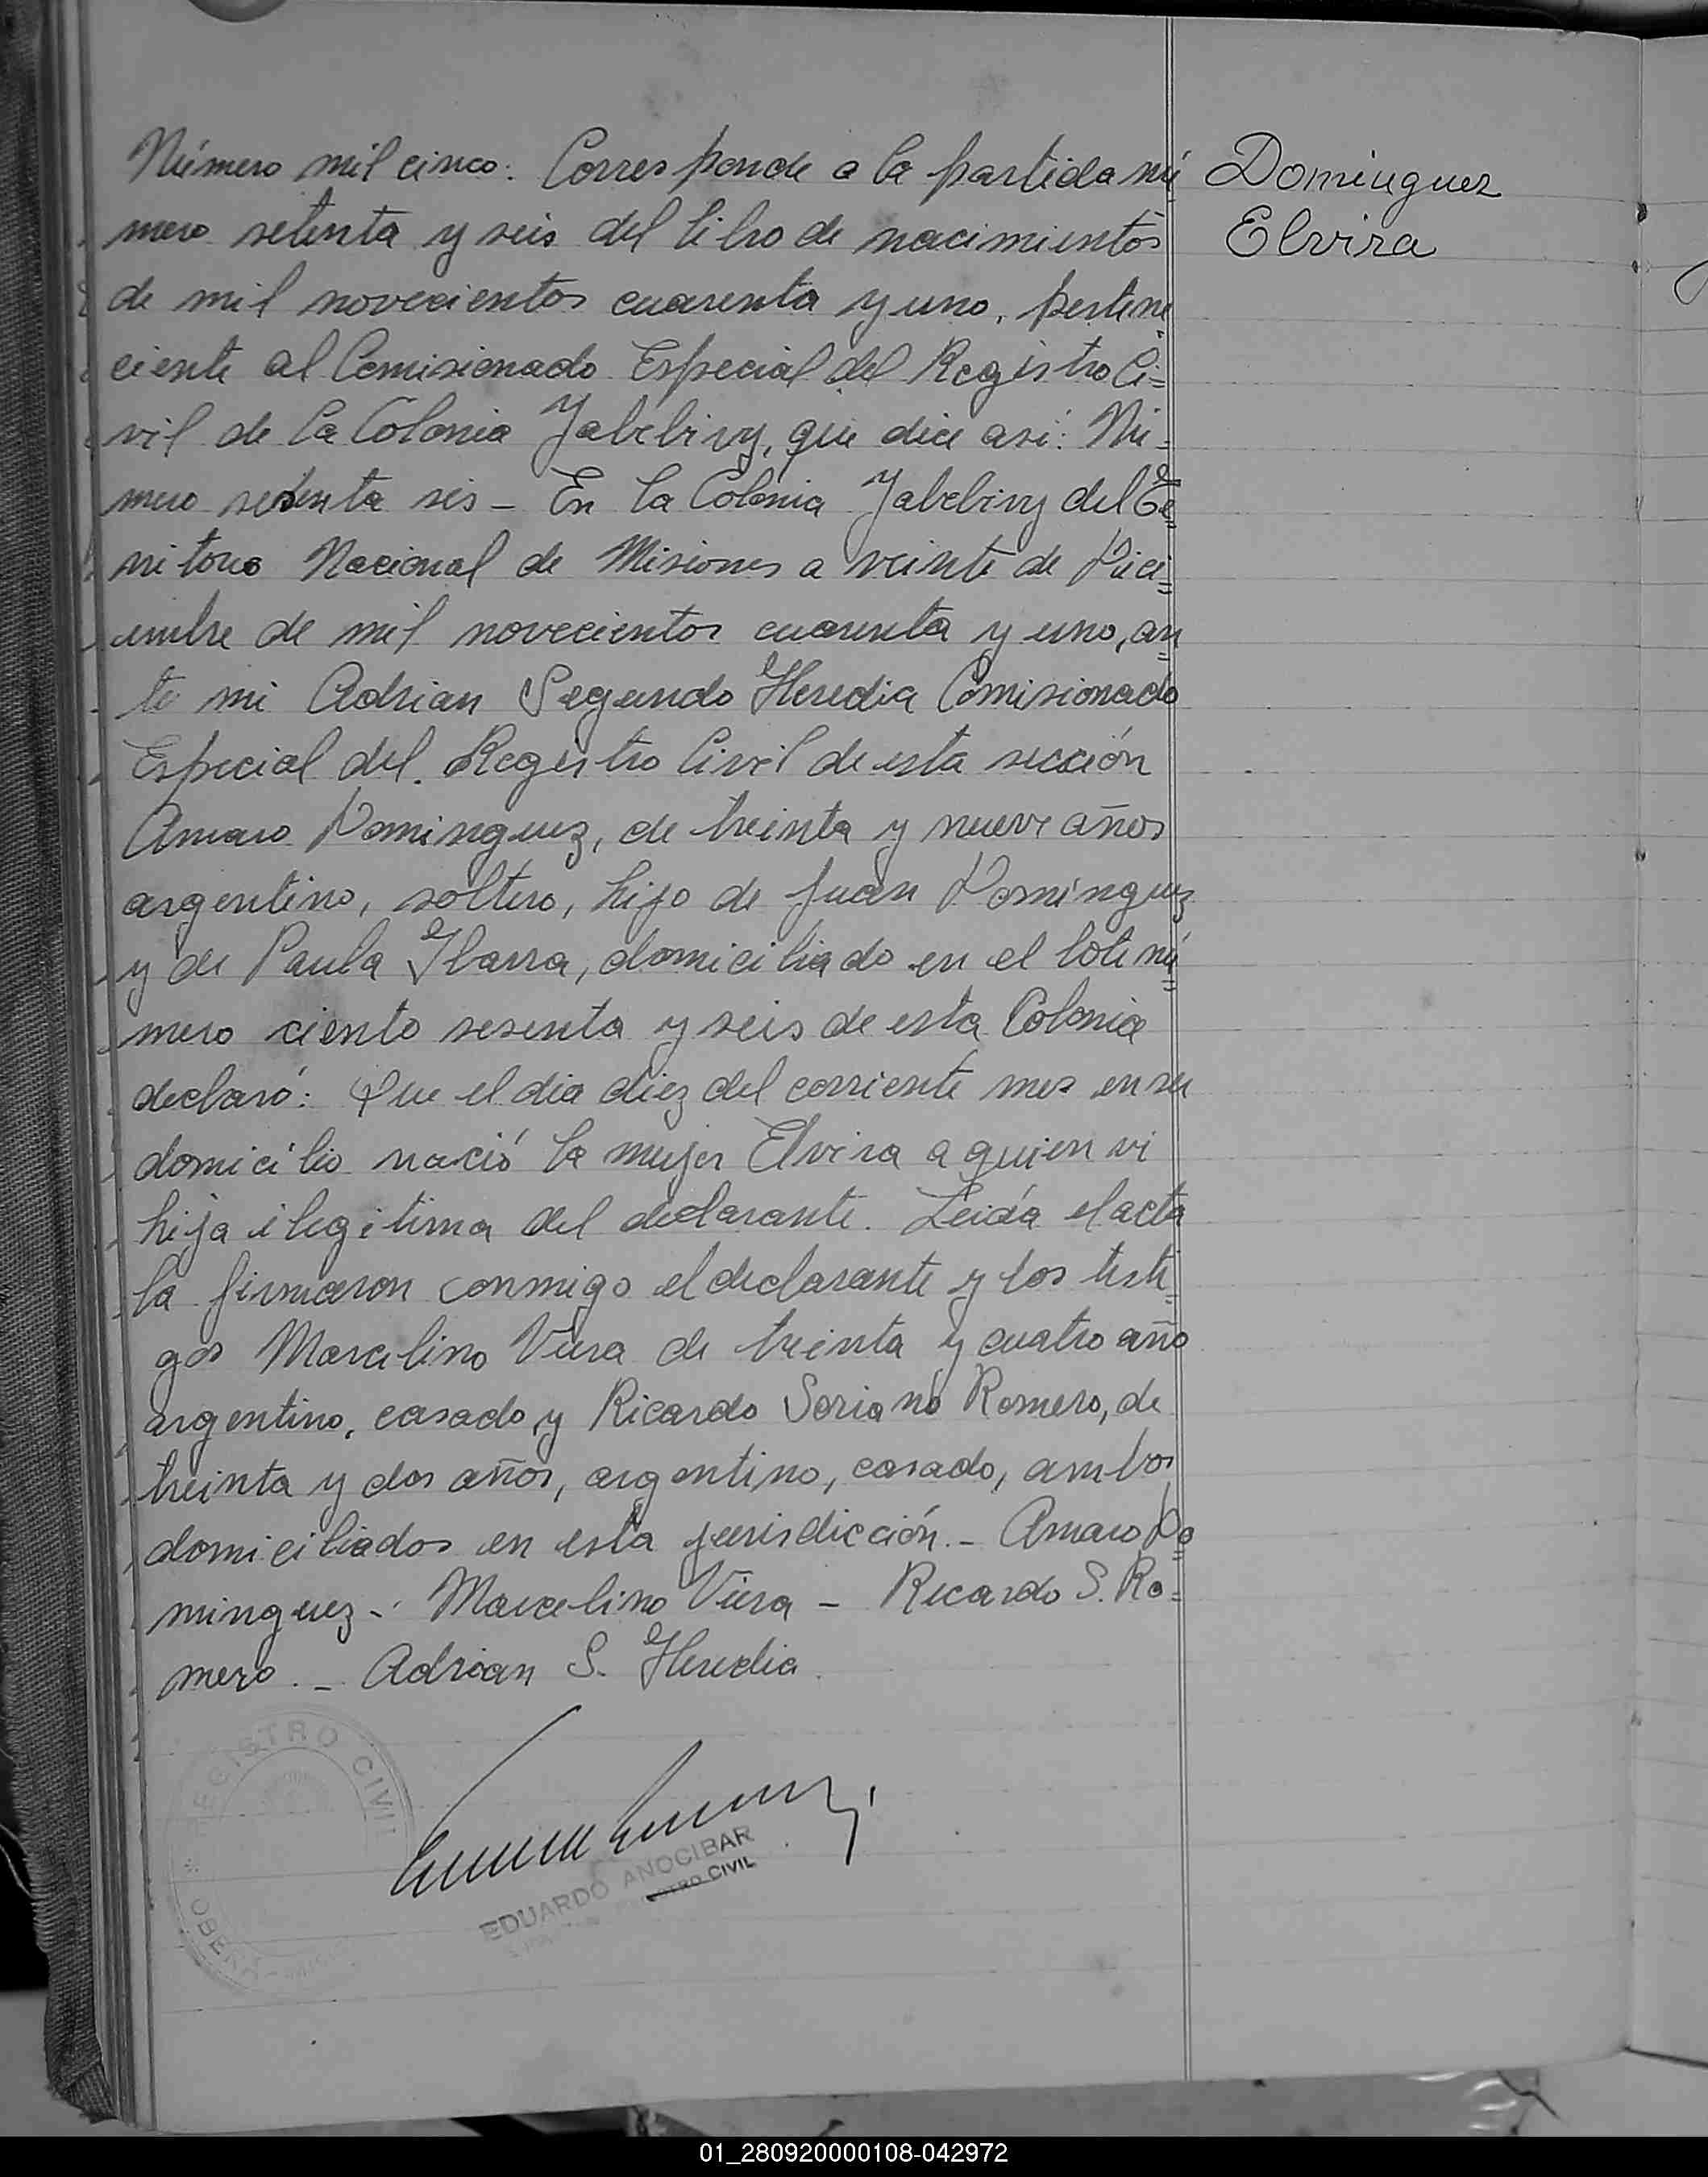 Número mil cinco. Corresponde a la partida nú
Dominguez
mero setenta y seis del libro de nacimientos
Elvira
de mil novecientos cuarenta y uno, pertene
ciente al Comisionado Especial del Registro Ci=
vil de la Colonia Yabebiry, que dice así: Nú=
mero setenta seis - En la Colonia Yabebiry del Te=
rritorio Nacional de Misiones a veinte de Dici=
embre de mil novecientos cuarenta y uno, an=
te mi Adrian Segundo Heredia Comisionado
Especial del Registro Civil de esta sección
Amaro Dominguez, de treinta y nueve años
argentino, soltero, hijo de Juan Dominguez
y de Paula Ibarra, domiciliado en el lote nú=
mero ciento sesenta y seis de esta Colonia
declaró: Que el dia diez del corriente mes en su
domicilio nació la mujer Elvira a quien vi
hija ilegitima del declarante. Leida el acta
la firmaron conmigo el declarante y los testi=
gos Marcelino Viera de treinta y cuatro año
argentino, casado, y Ricardo Soriano Romero, de
treinta y dos años, argentino, casado, ambos
domiciliados en esta jurisdicción. - Amaro Do=
minguez - Marcelino Viera - Ricardo S. Ro=
mero. - Adrian S. Heredia
REGISTRO CIVIL
EDUARDO ANOCIBAR
CIVIL
01_280920000108-042972